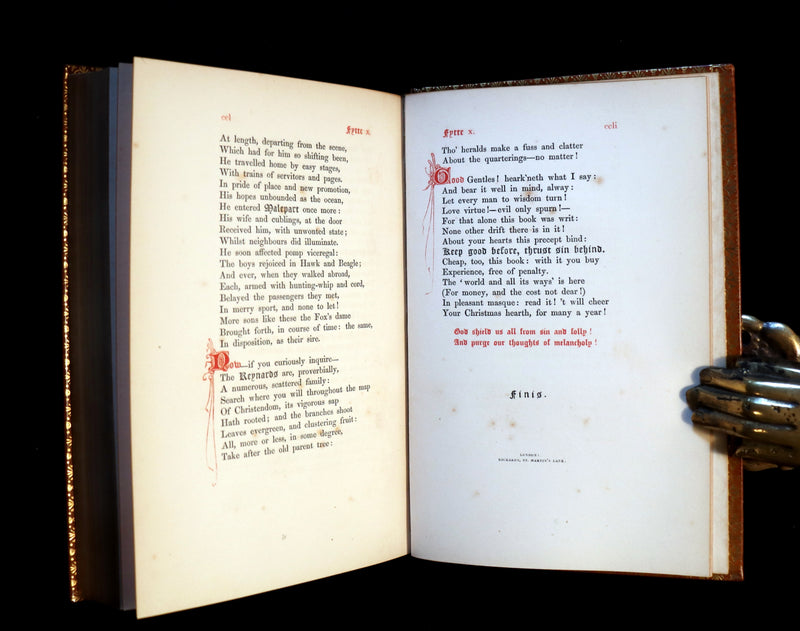 ccl
Fytte x.
At length, departing from the scene,
Which had for him so shifting been,
He travelled home by easy stages,
With trains of servitors and pages.
In pride of place and new promotion,
His hopes unbounded as the ocean,
He entered Malepart once more:
His wife and cublings, at the door
Received him, with unwonted state;
Whilst neighbours did illuminate.
He soon affected pomp viceregal:
The boys rejoiced in Hawk and Beagle;
And ever, when they walked abroad,
Each, armed with hunting-whip and cord,
Belayed the passengers they met,
In merry sport, and none to let!
More sons like these the Fox's dame
Brought forth, in course of time: the same,
In disposition, as their sire.
Now—if you curiously inquire—
The Reynards are, proverbially,
A numerous, scattered family:
Search where you will throughout the map
Of Christendom, its vigorous sap
Hath rooted; and the branches shoot
Leaves evergreen, and clustering fruit:
All, more or less, in some degree,
Take after the old parent tree:
Fytte x.
ccli
Tho' heralds make a fuss and clatter
About the quarterings—no matter!
Good Gentles! heark'neth what I say:
And bear it well in mind, alway:
Let every man to wisdom turn!
Love virtue!—evil only spurn!—
For that alone this book was writ:
None other drift there is in it!
About your hearts this precept bind:
Keep good before, thrust sin behind.
Cheap, too, this book: with it you buy
Experience, free of penalty.
The 'world and all its ways' is here
(For money, and the cost not dear!)
In pleasant masque: read it! 't will cheer
Your Christmas hearth, for many a year!
God shield us all from sin and folly!
And purge our thoughts of melancholy!
Finis.
LONDON:
RICKARDS, ST. MARTIN'S LANE.